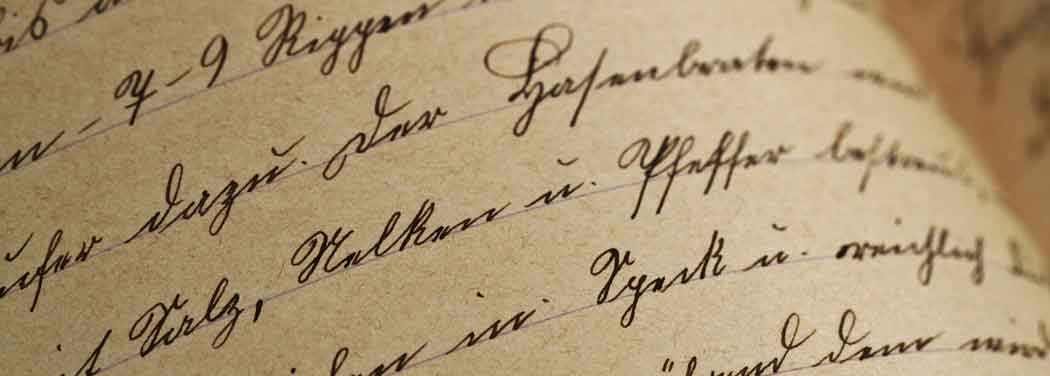 7-9 Rippen
dazu. Der Hasenbraten
Salz, Nelken u. Pfeffer bestreut
in Speck u. reichlich
dem wird